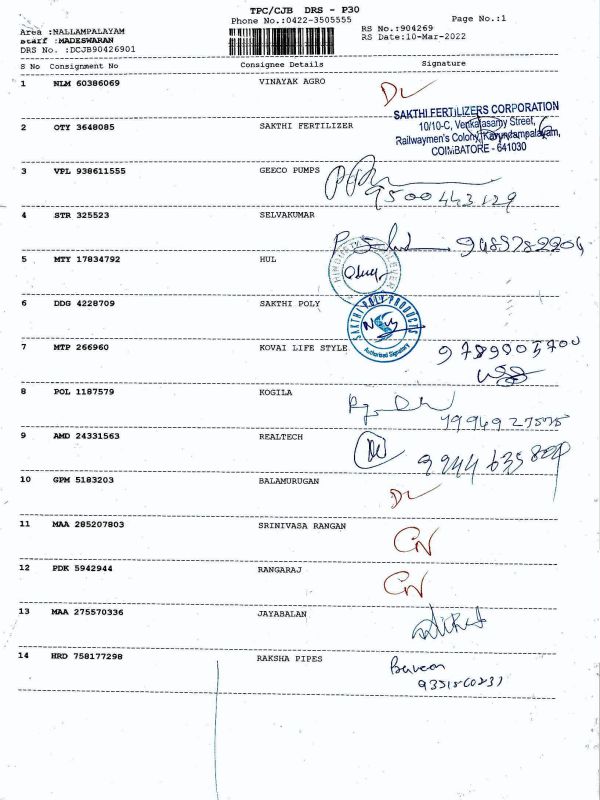 TPC/CJB DRS - P30
Phone No.:0422-3505555 Page No.:1
Area :NALLAMPALAYAM RS No.:904269
Staff :MADESWARAN RS Date:10-Mar-2022
DRS No. :DCJB90426901
S No Consignment No Consignee Details Signature
1 NLM 60386069 VINAYAK AGRO DL
SAKTHI FERTILIZERS CORPORATION
2 OTY 3648085 SAKTHI FERTILIZER 10/10-C, Venkatasamy Street,
Railwaymen's Colony, Kavundampalayam,
COIMBATORE - 641030
3 VPL 938611555 GEECO PUMPS
9500443129
4 STR 325523 SELVAKUMAR
5 MTY 17834792 HUL
6 DDG 4228709 SAKTHI POLY SAKTHI POLY PRODUCTS
Authorised Signatory
7 MTP 266960 KOVAI LIFE STYLE
8 POL 1187579 KOGILA
9 AMD 24331563 REALTECH
10 GPM 5183203 BALAMURUGAN DL
11 MAA 285207803 SRINIVASA RANGAN CN
12 PDK 5942944 RANGARAJ CN
13 MAA 275570336 JAYABALAN
14 HRD 758177298 RAKSHA PIPES